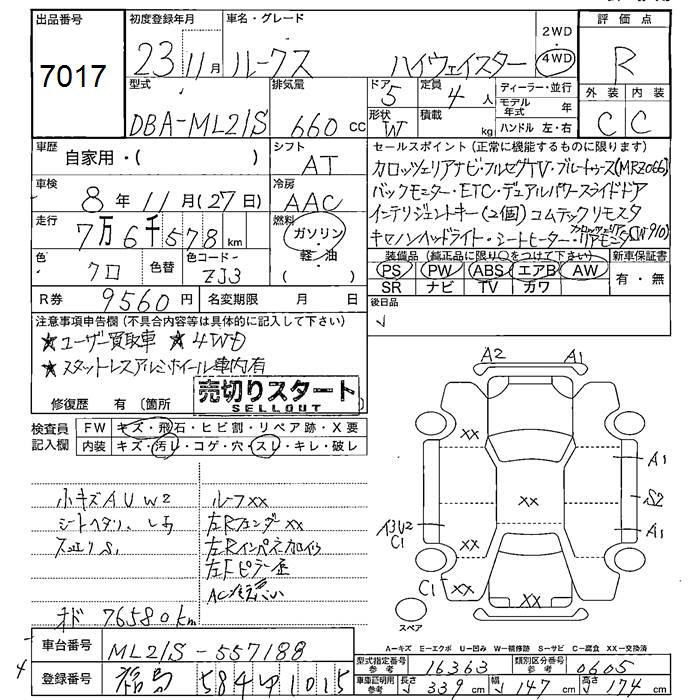 出品番号
7017
初度登録年月
23 11月
車名・グレード
ルークス ハイウェイスター
2WD
4WD
評価点
R
外装 内装
C C
型式
DBA-ML21S
排気量
660 cc
ドア
5
形状
W
定員
4 人
積載
kg
ディーラー・並行
モデル年式 年
ハンドル 左・右
車歴
自家用・( )
シフト
AT
車検
8年11月(27日)
冷房
AAC
走行
7万6千578 km
燃料
ガソリン・軽油
( )
色
クロ
色替
色コード
ZJ3
R券
9560円
名変期限 月 日
セールスポイント(正常に機能するものに限ります)
カロッツェリアナビ・フルセグTV・ブルートゥース(MRZ066)
バックモニター・ETC・デュアルパワースライドドア
インテリジェントキー(2個) コムテックリモスタ
キセノンヘッドライト・シートヒーター・カロッツェリアリアモニタ
装備品(純正品に限り○をつけて下さい)
PS PW ABS エアB AW
SR ナビ TV カワ
新車保証書
有・無
後日品
注意事項申告欄(不具合内容等は具体的に記入して下さい)
★ユーザー買取車 ★4WD
★スタットレスアルミホイール車内有
売切りスタート
SELLOUT
修復歴 有 〔箇所
検査員記入欄
FW キズ・飛石・ヒビ割・リペア跡・X要
内装 キズ・汚レ・コゲ・穴・スレ・キレ・破レ
小キズAUW2
シートヘタリ
ルーフXX
左Rフェンダー XX
左Rインパネ加修
左Fピラー歪
オド 76580km
車台番号
ML21S-557188
登録番号
福島 584 ゆ 1015
A2 A1
XX
A1
XX
S2
A1
C1
XX
C1 XX XX
スペア
A−キズ E−エクボ U−凹み W−補修跡 S−サビ C−腐食 XX−交換済
型式指定番号
参考
16363
類別区分番号
参考
0605
車庫証明用
参考
長さ 339 cm 幅 147 cm 高さ 174 cm